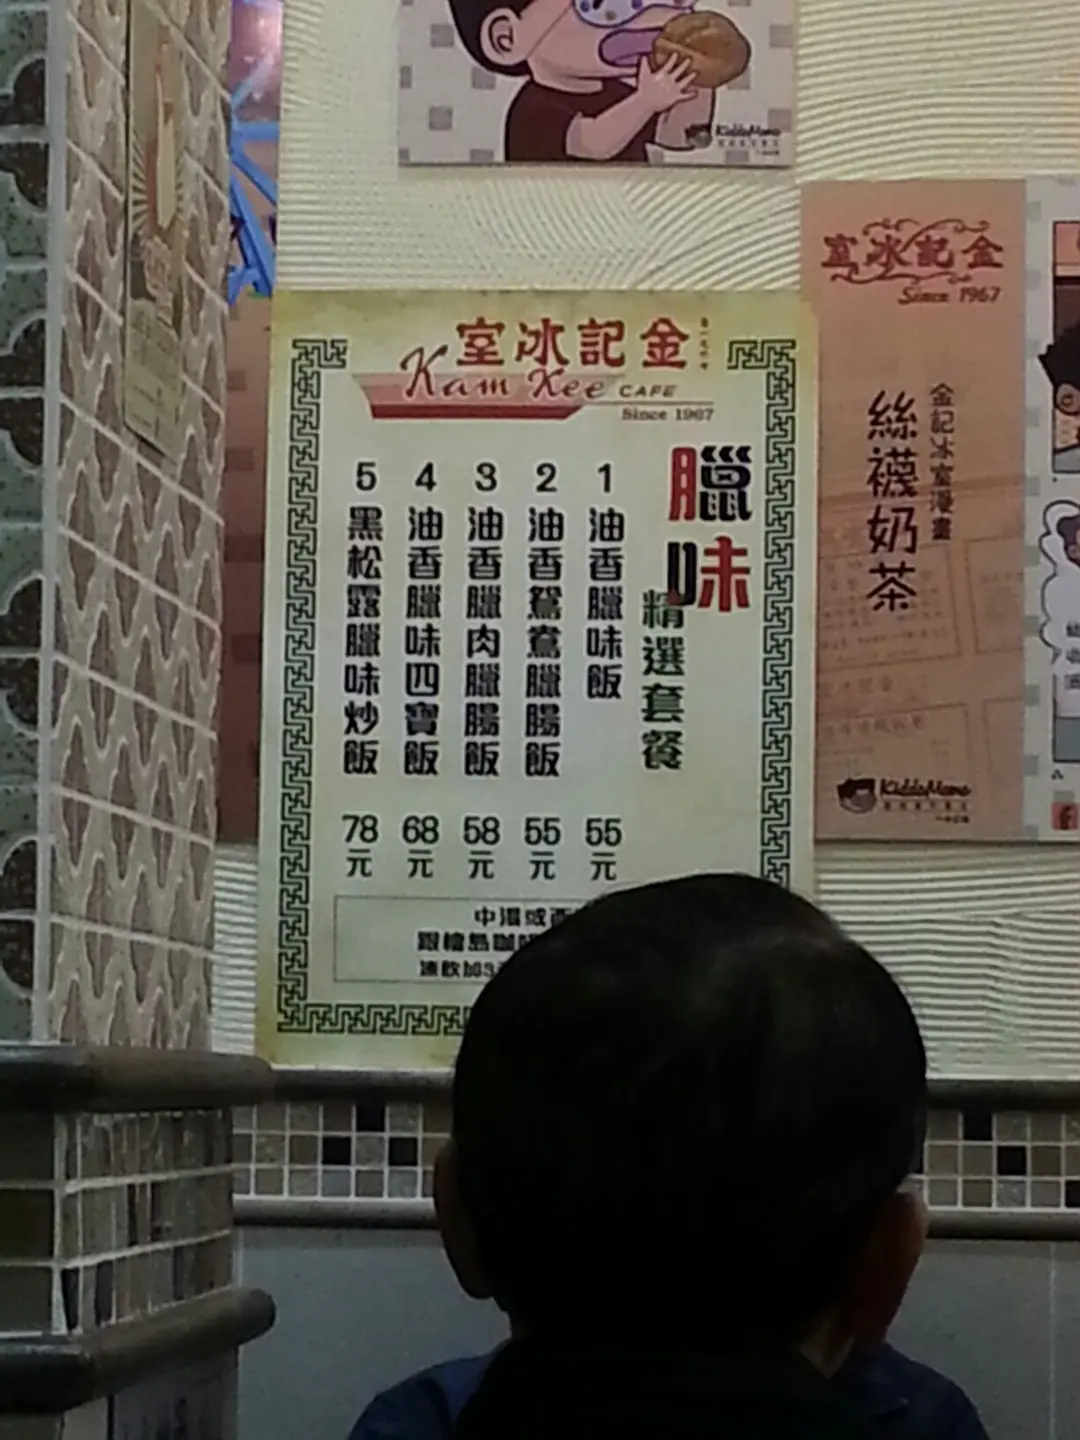 KiddoMama
金記冰室
Kam Kee CAFE
Since 1967
臘味
精選套餐
1 油香臘味飯 55元
2 油香鴛鴦臘腸飯 55元
3 油香臘肉臘腸飯 58元
4 油香臘味四寶飯 68元
5 黑松露臘味炒飯 78元
跟檜島咖啡
凍飲加3
金記冰室
Since 1967
金記冰室漫畫
絲襪奶茶
KiddoMama